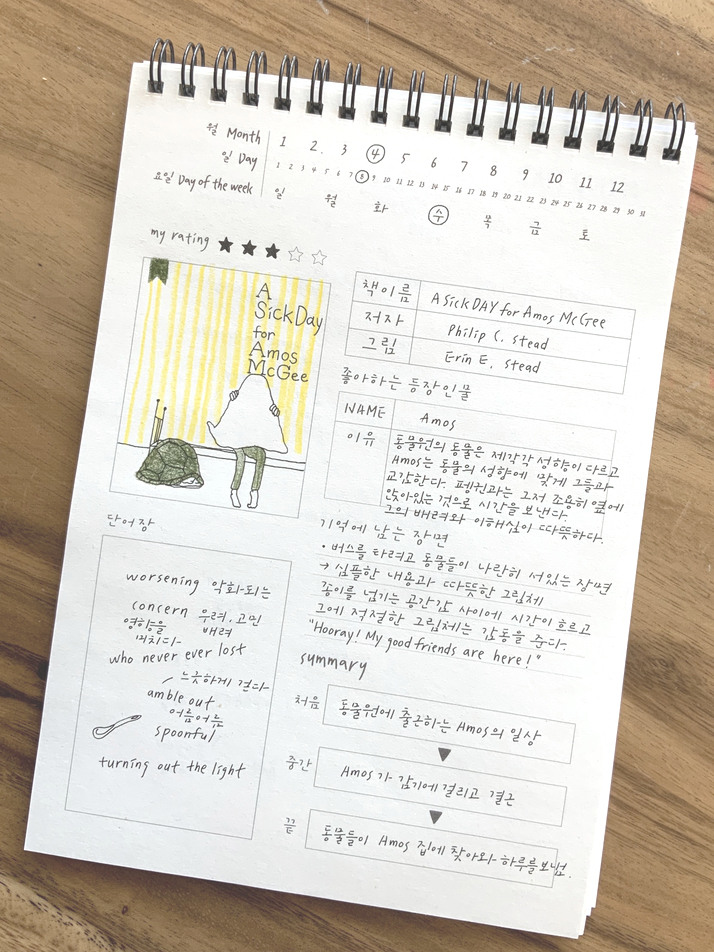 월 Month 1 2. 3 4 5 6 7 8 9 10 11 12
일 Day 1 2 3 4 5 6 7 8 9 10 11 12 13 14 15 16 17 18 19 20 21 22 23 24 25 26 27 28 29 30 31
요일 Day of the week 일 월 화 수 목 금 토
my rating
A
Sick Day
for
Amos
McGee
책이름 A Sick DAY for Amos McGee
저자 Philip C. Stead
그림 Erin E. Stead
좋아하는 등장인물
NAME Amos
이유 동물원의 동물은 제각각 성향이 다르고
Amos는 동물의 성향에 맞게 그들과
교감한다. 펭귄과는 그저 조용히 옆에
앉아있는 것으로 시간을 보낸다.
그의 배려와 이해심이 따뜻하다.
기억에 남는 장면
• 버스를 타려고 동물들이 나란히 서있는 장면
→ 심플한 내용과 따뜻한 그림체
종이를 넘기는 공간감 사이에 시간이 흐르고
그에 적절한 그림체는 감동을 준다.
"Hooray! My good friends are here!"
summary
처음 동물원에 출근하는 Amos의 일상
중간 Amos가 감기에 걸리고 결근
끝 동물들이 Amos 집에 찾아와 하루를 보냄.
단어장
worsening 악화되는
concern 우려, 고민
영향을 배려
미치다
who never ever lost
느긋하게 걷다
amble out
어슬어슬
spoonful
turning out the light